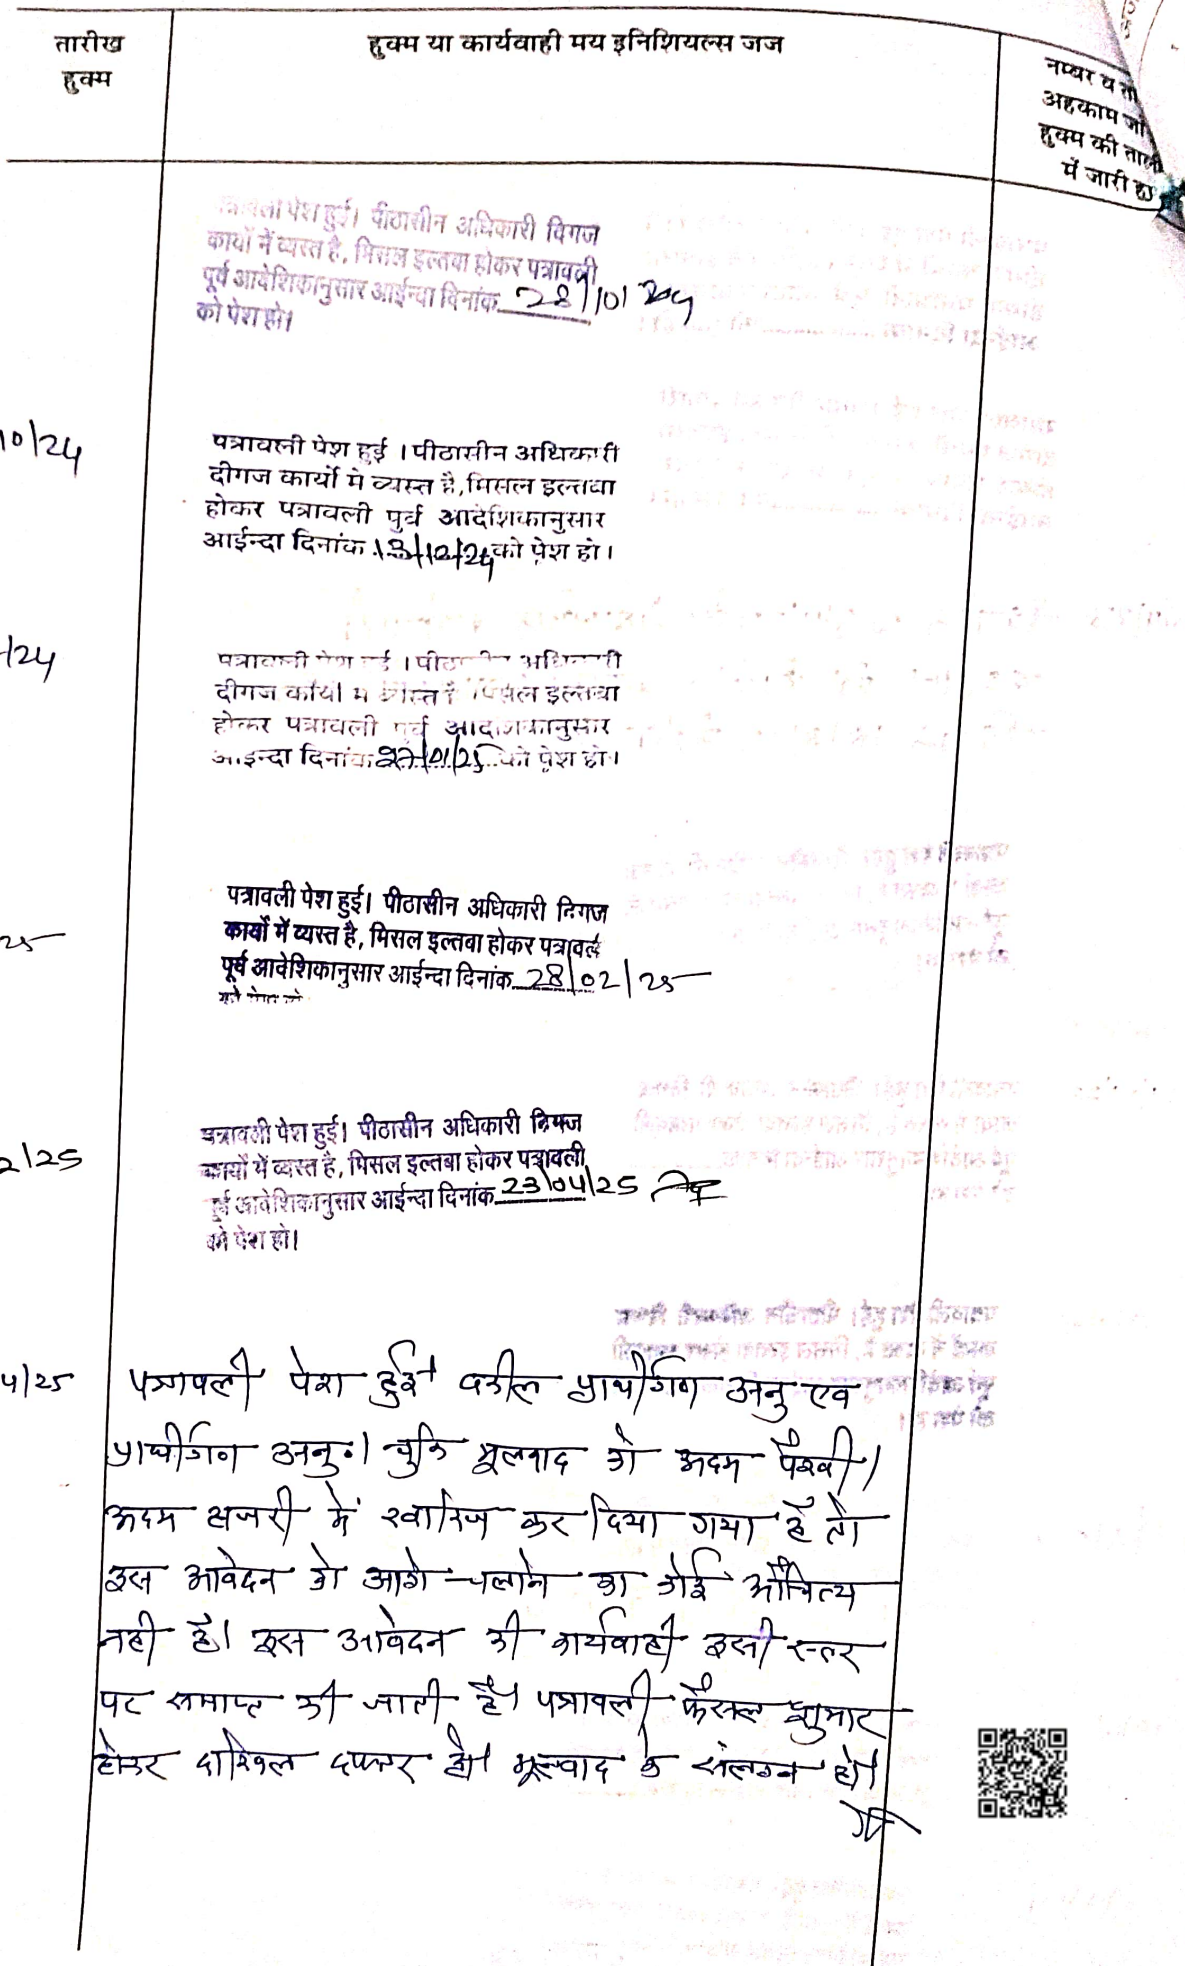 तारीख
हुक्म
हुक्म या कार्यवाही मय इनिशियल्स जज
नम्बर व ता
अहकाम जो
हुक्म की ताली
में जारी हु
पेश हुई। पीठासीन अधिकारी विगज
कार्यो में व्यस्त है, मिसल इल्तवा होकर पत्रावली
पूर्व आदेशिकानुसार आईन्दा दिनांक 28/10/24
को पेश हो।
10/24
पत्रावली पेश हुई । पीठासीन अधिकारी
दीगज कार्यो मे व्यस्त है, मिसल इल्तवा
होकर पत्रावली पुर्व आदेशिकानुसार
आईन्दा दिनांक 13/12/24 को पेश हो।
/24
पत्रावली पेश हुई । पीठासीन अधिकारी
दीगज कार्यो मे व्यस्त है मिसल इल्तवा
होकर पत्रावली पुर्व आदेशिकानुसार
आईन्दा दिनांक 27/01/25 को पेश हो।
25
पत्रावली पेश हुई। पीठासीन अधिकारी दिगज
कार्यो में व्यस्त है, मिसल इल्तवा होकर पत्रावली
पूर्व आदेशिकानुसार आईन्दा दिनांक 28/02/25
को पेश हो
2/25
पत्रावली पेश हुई। पीठासीन अधिकारी
कार्यो में व्यस्त है, मिसल इल्तवा होकर पत्रावली
पूर्व आदेशिकानुसार आईन्दा दिनांक 23/04/25
को पेश हो।
4/25
पत्रावली पेश हुई। वकील प्रार्थीगण अनु एव
प्रार्थीगण अनु०। चुकि मूलवाद को अदम पैरवी।
अदम हाजरी में खारिज कर दिया गया है तो
इस आवेदन को आगे चलाने का कोई औचित्य
नही है। इस आवेदन की कार्यवाही इसी स्तर
पर समाप्त की जाती है। पत्रावली फैसल शुमार
होकर दाखिल दफ्तर हो। मूलवाद के संलग्न हो।